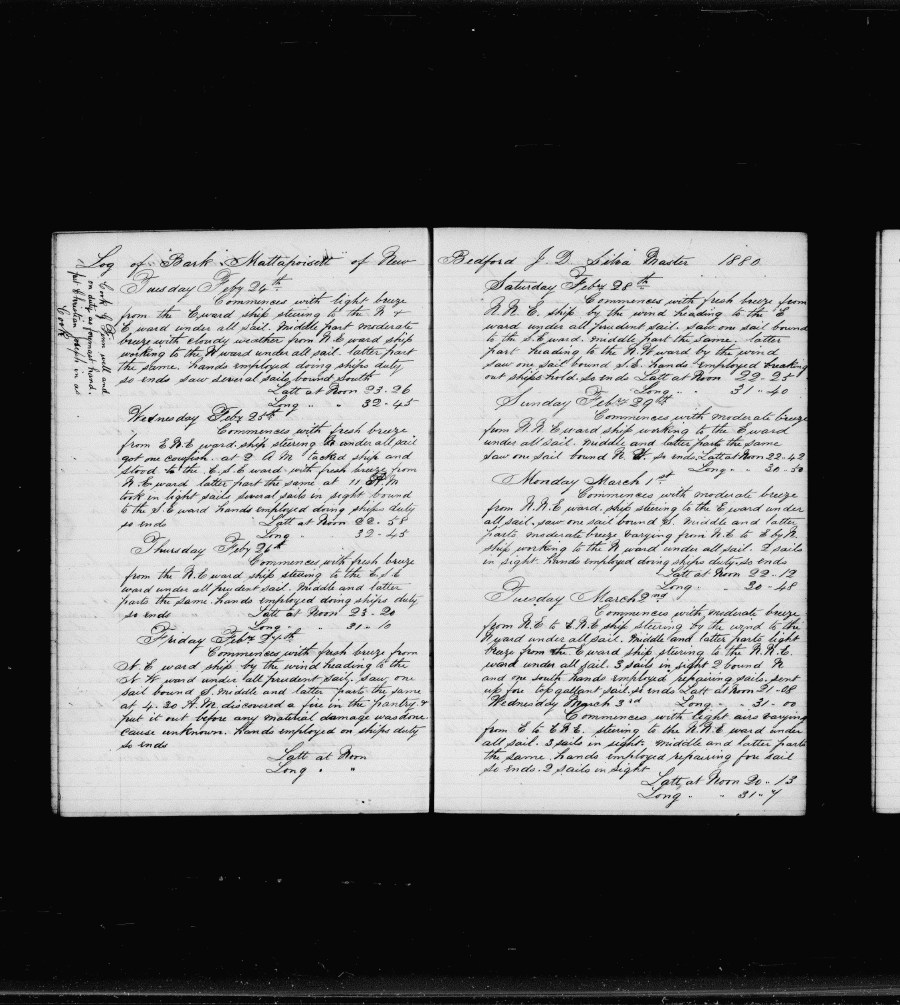 Log of Bark Mattapoisett of New
Cook J Fonn well and
on duty as foremast hand.
put Christian Joseph in as
Cook
Tuesday Feby 24th
Commences with light breeze
from the E,ward ship steering to the N &
E ward under all sail. Middle part moderate
breeze with cloudy weather from N E ward ship
working to the N ward under all sail latter part
the same. hands employed doing ships duty
so ends saw several sails bound South
Latt at Noon 23-26
Long " " 32-45
Wednesday Feby 25th
Commences with fresh breeze
from E.N.E ward. ship steering N under all sail
got one cowfish. at 2 A M tacked ship and
stood to the E.S.E ward. with fresh breeze from
N E. ward latter part the same at 11 A.M
took in light sails several sails in sight bound
to the S.E ward hands employed doing ships duty
so ends Latt at Noon 22-58
Long " 32-45
Thursday Feby 26th
Commences with fresh breeze
from the N.E ward ship steering to the E.S E
ward under all prudent sail. Middle and latter
parts the same. hands employed doing ships duty
so ends Latt at Noon 23-20
Long " " 31-10
Friday Feby 27th
Commences with fresh breeze from
N E ward ship by the wind heading to the
N W ward under all prudent sail. saw one
sail bound S. middle and latter parts the same
at 4-30 A.M. discovered a fire in the pantry. &
put it out before any material damage was done.
cause unknown. hands employed on ships duty
so ends
Latt at Noon
Long " "
Bedford J. D. Silva Master 1880
Saturday Feby 28th
Commences with fresh breeze from
N.N. E. ship by the wind heading to the E
ward under all prudent sail. saw one sail bound
to the S.E ward. middle part the same. latter
part heading to the N.W ward by the wind
saw one sail bound S.E. hands employed breaking
out ships hold. so ends Latt at Noon 22-25
Long " " 31-40
Sunday Feby 29th
Commences with moderate breeze
from N.N.E ward ship working to the E ward
under all sail. middle and latter parts the same
saw one sail bound N. W. so ends. Latt at Noon 22-42
Long " " 30-50
Monday March 1st
Commences with moderate breeze
from N.N.E ward. ship steering to the E ward under
all sail. saw one sail bound S. Middle and latter
parts moderate breeze varying from N.E to E by N.
ship working to the N ward under all sail. 2 sails
in sight. hands employed doing ships duty. so ends
Latt at Noon 22-12
Long " " 20-48
Tuesday March 2nd
Commences with moderate breeze
from N.E to E.N.E ship steering by the wind to the
N ward under all sail. Middle and latter parts light
breeze from the E ward ship steering to the N.N.E.
ward under all sail. 3 sails in sight 2 bound N
and one south hands employed repairing sails. sent
up fore top gallant sail. so ends Latt at Noon 21-08
Wednesday March 3rd Long " " 31-00
Commences with light airs varying
from E to E.N.E. steering to the N.N.E ward under
all sail. 3 sails in sight. middle and latter parts
the same. hands employed repairing fore sail
so ends. 2 sails in sight
Latt at Noon 20-13
Long " " 31-7